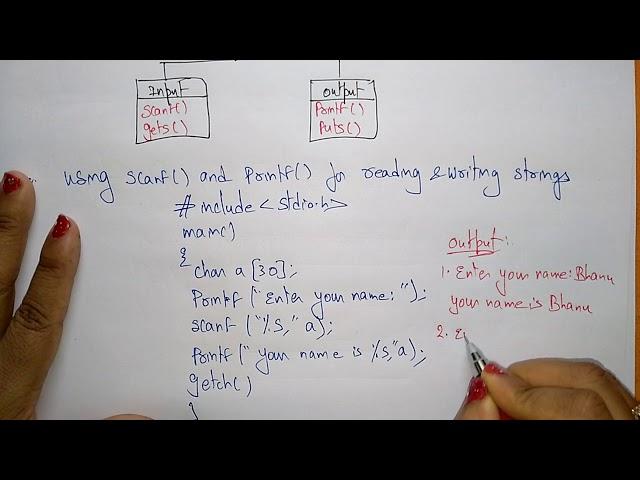 Input
Output
scanf()
gets()
Printf()
Puts()
using scanf() and Printf() for reading & writing strings
#include <stdio.h>
main()
{
char a[30];
Printf ("Enter your name: ");
scanf ("%s," a);
Printf (" your name is %s," a);
getch()
}
output:
1. Enter your name: Bhanu
your name is Bhanu
2. E